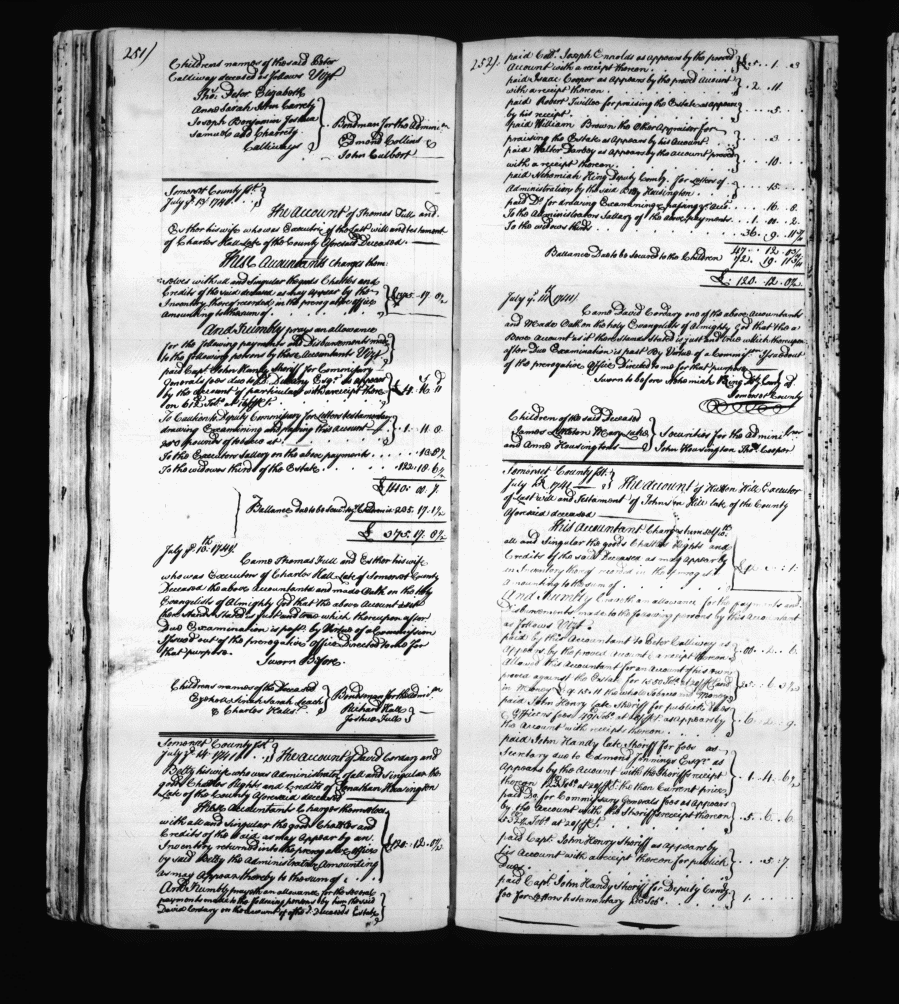 251/
Childrens names of the said Peter
Calliway deceased as follows Vizt
Thos. Peter Elizabeth
Anna Sarah John Carrely
Joseph Benjamin Joshua
Samuel and Charrety
Calliways
Bondsmen for the Admin
Edmond Collins
John Culbert
Somerset County Sct.
July ye 13th 1741
The Account of Thomas Tull and
Esther his wife who was Executrix of the last will and testament
of Charles Hall Late of the County Aforesaid Deceased
These Accountants charges them
selves with all and Singular the goods Chattles and
Credits of the said deceased as may Appear by the
Inventory there recorded in the prerogative office
Amounting to the sum of
And Humbly prays an allowance
for the following payments and Disbursements made
to the following persons by these Accountants Vizt
paid Capt John Handy Sheriff for Commissary
Generals fees due to Dl. Dulany Esqr. as appears
by the Account of particulars with receipt thereon
To Deputy Commissary for Letters testamentary
drawing Examining and passing this Account
pounds of tobacco at
1 . 11 8
To the Executors Sallery on the above payments
To the widows thirds of the Estate
Ballance due to be
£ 375. 17. 0½
July ye 13th 1741.
Came Thomas Tull and Esther his wife
who was Executrix of Charles Hall Late of Somerset County
Deceased the above accountants and made Oath on the Holy
Evangelists of Almighty God that the above Account as it
there Stands Stated is just and true which thereupon after
Due Examination is past by Virtue of a Commission
Issued out of the prerogative Office Directed to me for
that purpose.
Sworn Before
Childrens names of the Deceased
Sarah Leach
& Charles Halls
Bondsmen for the Admin
Richard Hall
Joshua Tull
Somerset County Sct.
July ye 14 1741
The Account of David Cordary and
Betty his wife who was Administratrix of all and Singular the
goods Chattles Rights and Credits of Jonathan Housington
Late of the County Aforesaid deceased
These Accountants Charges themselves
with all and Singular the goods Chattles and
Credits of the said as may Appear by an
Inventory returned into the prerogative office
by said Betty the Administratrix Amounting
as may Appear thereby to the sum of
£120. 12. 0½
And Humbly prayeth an allowance for the several
payments made to the following persons by him the said
David Cordary on the account of the sd. deceased Estate
252/.
paid Capt. Joseph Ennalds as appears by the proved
Account with a receipt thereon
paid Isaac Cooper as Appears by the proved Account
with a receipt thereon
. 2 . 11.
paid Robert Twilley for praising the Estate as appears
by his receipt
5
paid William Brown the Other Appraiser for
praising the Estate as Appears by his Account
3
paid Walter Darby as appears by the Account proved
with a receipt thereon
10.
paid Nehemiah King Deputy Comry. for Letters of
Administration by the said Betty Housington
15
paid Do. for drawing Examining & passing ye Acct.
16. 8.
To the Administrators Sallary of the above payments
1. 11. 2.
To the widows third
36. 9. 11¾
47. 12. 0¾
Ballance Due to be Secured to the Children
72. 19. 11¾
£. 120. 12. 0½
July ye. 14th 1741.
Came David Cordary one of the above Accountants
and Made Oath on the Holy Evangelists of Almighty God that the a
Bove Account as it there Stands Stated is just and true which thereupon
after Due Examination is past By Virtue of a Commissn. Issued out
of the prerogative Office Directed to me for that purpose
Sworn to before Nehemiah King Dty Comry of
Somerset County
Children of the said Deceased
James Littleton Mary Luke
and Anna Housingtons
Securities for the Admin
John Housington Thos. Cooper
Somerset County Sct.
July 1741
The Account of Hutton Hill Executor
of Last Will and Testament of Johnson Hill late of the County
Aforesaid deceased
This Accountant Charges himself wth.
all and Singular the goods Chattles Rights and
Credits of the said Deceased as may Appear by
an Inventory thereof recorded in the prerog. office
Amounting to the sum of
And Humbly Craveth an allowance for the payments and
Disbursements made to the following persons by this Accountant
as follows Vizt.
paid by this Accountant to Peter Calliway as
Appears by the proved Account & receipt thereon
Allowed this Accountant for an Account of his own
proved against the Estate for
in Money
paid John Henry late Sheriff for publick Dues
Officers fees as appears by
the Account with receipts thereon
6
9.
paid John Handy late Sheriff for fees as
Secretary due to Edmond Jennings Esqr. as
Appears by the Account with the Sheriffs receipt
thereon the then Current price
1. 4. 6½
paid Do. for Commissary Generals fees as appears
by the Account with the Sheriffs receipt thereon
5. 6. 6.
paid Capt. John Henry Sheriff as appears by
his Account with a receipt thereon for publick
Dues
5. 7
paid Capt. John Handy Sheriff for Deputy Comry
fee for Letters testamentary
1